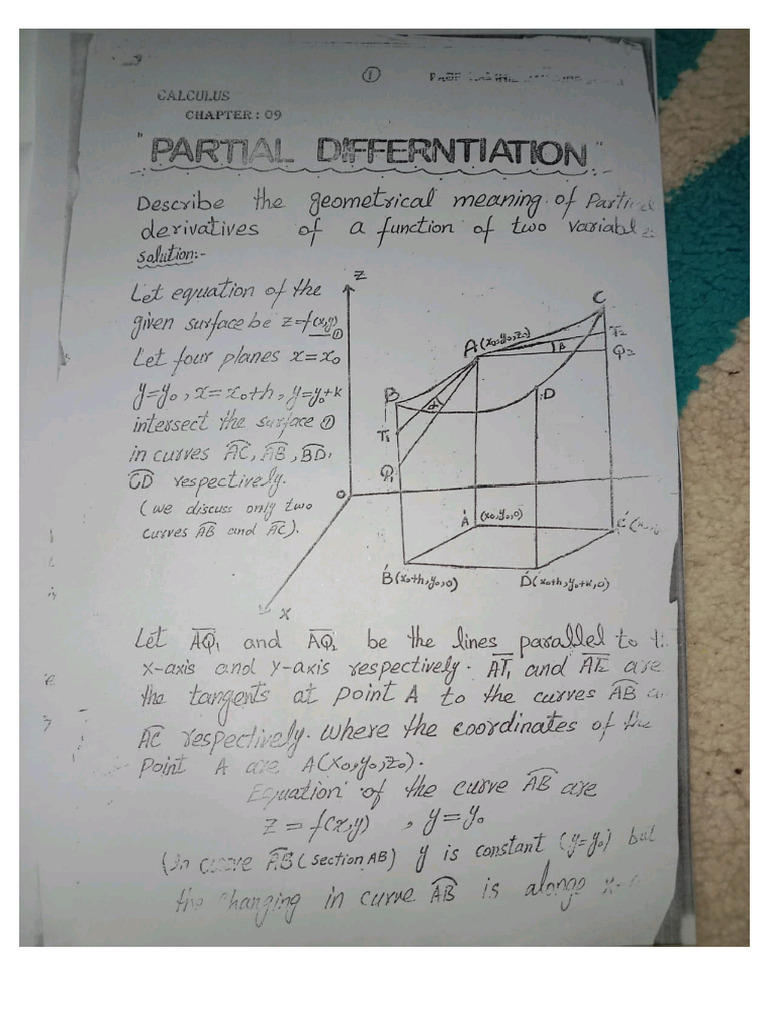 ①
CALCULUS
CHAPTER : 09
"PARTIAL DIFFERNTIATION"
Describe the geometrical meaning of
derivatives of a function of two
solution:-
Let equation of the
given surface be z=f(x,y) ①
Let four planes x=x₀
y=y₀, x=x₀+h, y=y₀+k
intersect the surface ①
in curves AC, AB, BD,
CD respectively.
(we discuss only two
curves AB and AC).
Z
C
A(x₀,y₀,z₀)
T₂
β
Q₂
B
α
D
T₁
Q₁
O
Á (x₀,y₀,0)
Ć
B́(x₀+h,y₀,0)
D́(x₀+h,y₀+k,0)
X
Let AQ₁ and AQ₂ be the lines parallel to
x-axis and y-axis respectively. AT₁ and AT₂ are
the tangents at point A to the curves AB
AC respectively. where the coordinates of the
point A are A(x₀,y₀,z₀).
Equation of the curve AB are
z = f(x,y) , y=y₀
(In curve AB (section AB) y is constant (y=y₀) but
the changing in curve AB is alonge x-